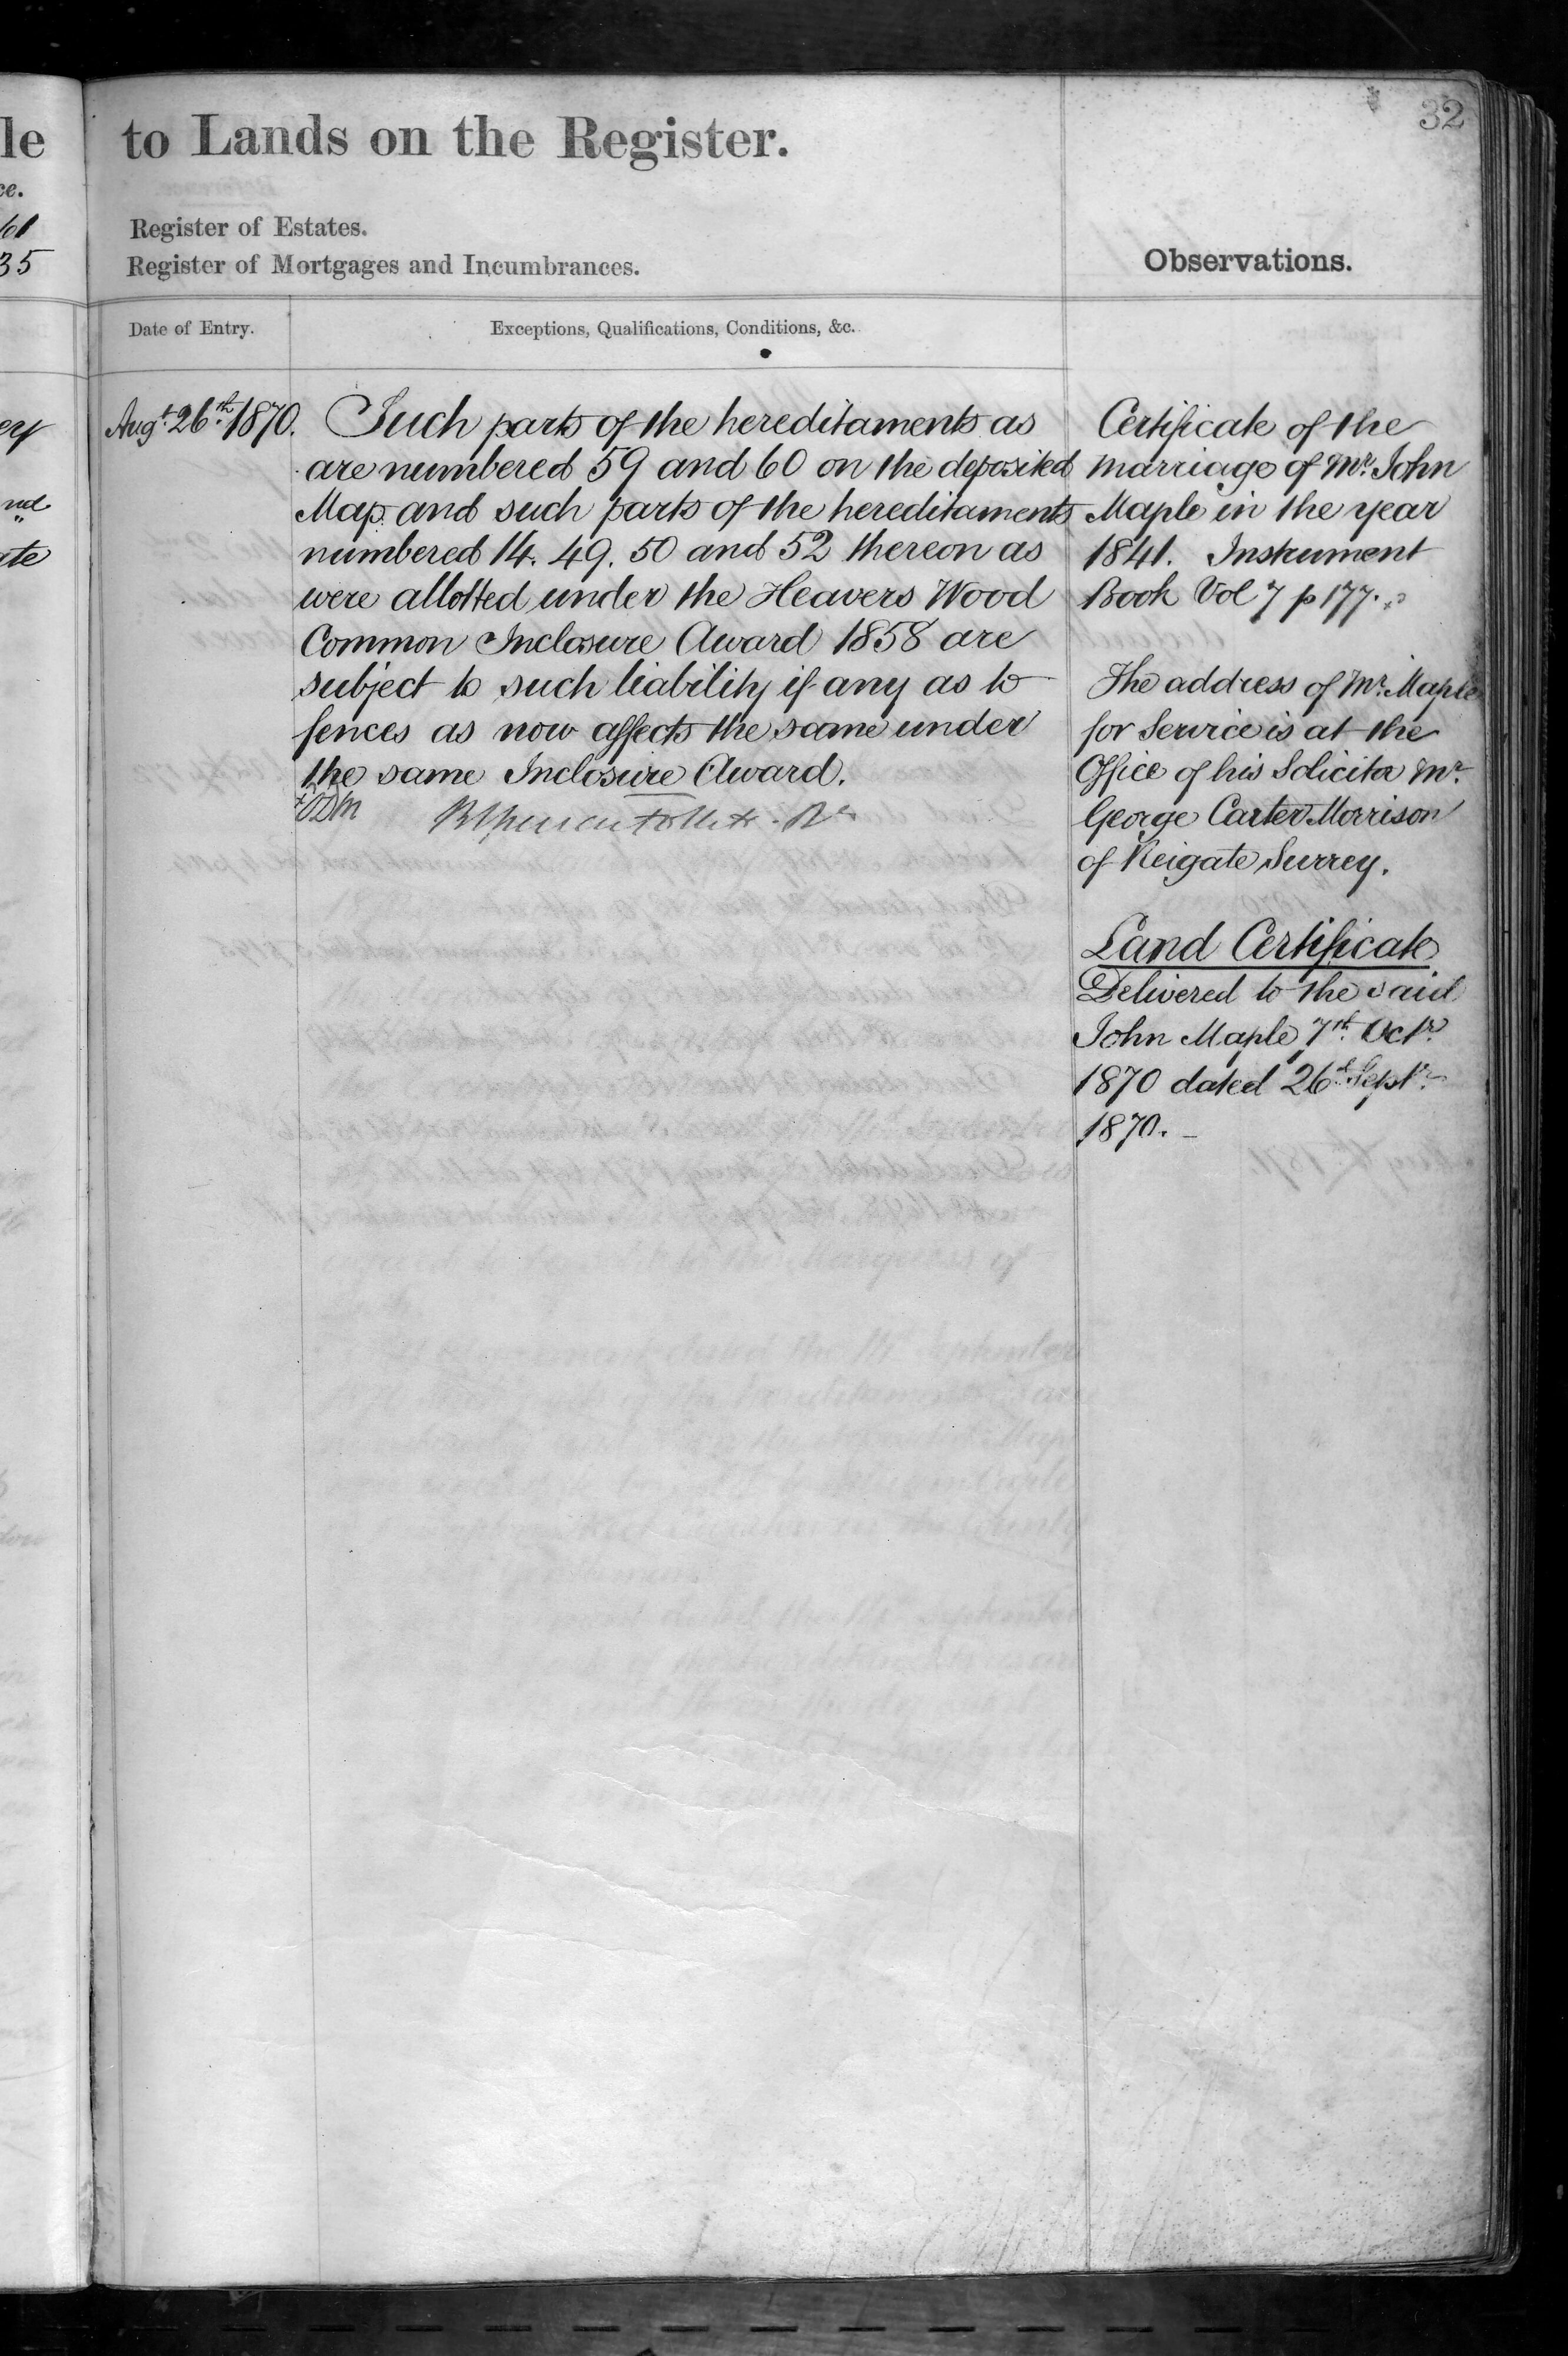 le
ce.
61
35
ery
nd
ate
to Lands on the Register.
32
Register of Estates.
Register of Mortgages and Incumbrances.
Observations.
Date of Entry.
Exceptions, Qualifications, Conditions, &c.
Augt. 26th. 1870.
Such parts of the hereditaments as
are numbered 59 and 60 on the deposited
Map and such parts of the hereditaments
numbered 14. 49. 50 and 52 thereon as
were allotted under the Heavers Wood
Common Inclosure Award 1858 are
subject to such liability if any as to
fences as now affects the same under
the same Inclosure Award.
Certificate of the
marriage of Mr. John
Maple in the year
1841. Instrument
Book Vol 7 p 177.
The address of Mr. Maple
for Service is at the
Office of his Solicitor Mr.
George Carter Morrison
of Reigate Surrey.
Land Certificate
Delivered to the said
John Maple 7th. Octr.
1870 dated 26th Septr.
1870. –